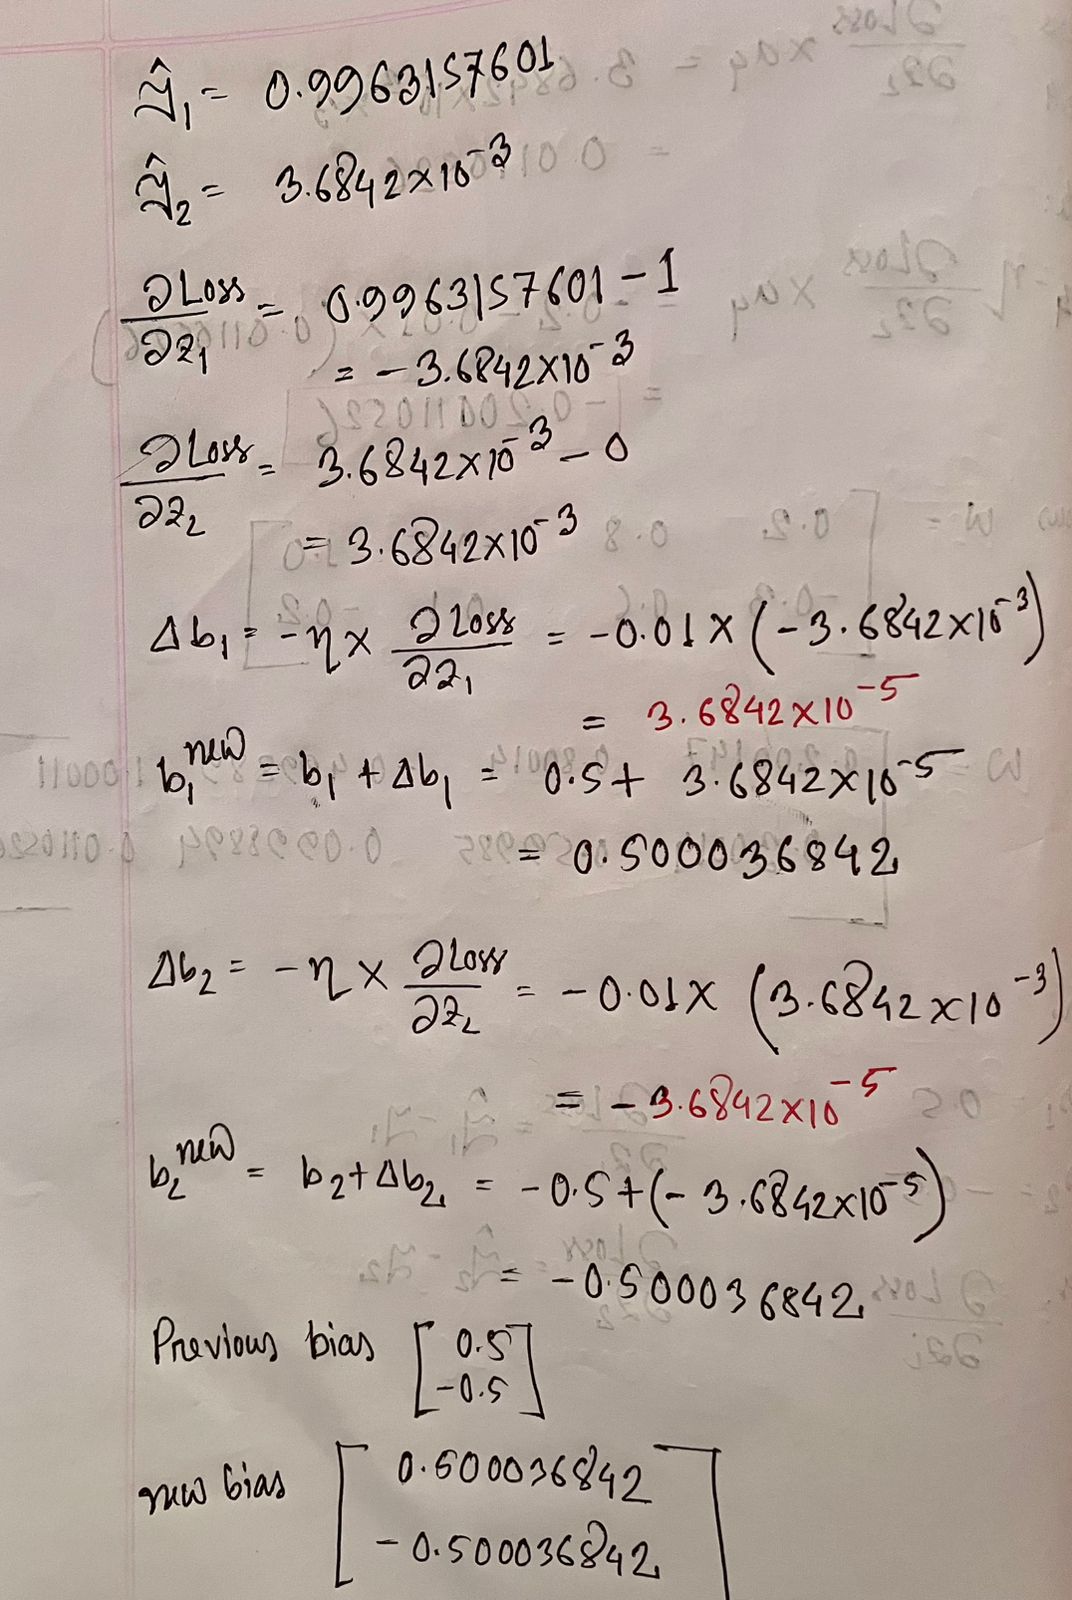 ŷ₁ = 0.9963157601
ŷ₂ = 3.6842×10⁻³
∂Loss/∂z₁ = 0.9963157601 − 1
= −3.6842×10⁻³
∂Loss/∂z₂ = 3.6842×10⁻³ − 0
= 3.6842×10⁻³
Δb₁ = −η × ∂Loss/∂z₁ = −0.01 × (−3.6842×10⁻³)
= 3.6842×10⁻⁵
b₁ⁿᵉʷ = b₁ + Δb₁ = 0.5 + 3.6842×10⁻⁵
= 0.500036842
Δb₂ = −η × ∂Loss/∂z₂ = −0.01 × (3.6842×10⁻³)
= −3.6842×10⁻⁵
b₂ⁿᵉʷ = b₂ + Δb₂ = −0.5 + (−3.6842×10⁻⁵)
= −0.500036842
Previous bias [0.5
−0.5]
new bias [0.500036842
−0.500036842]